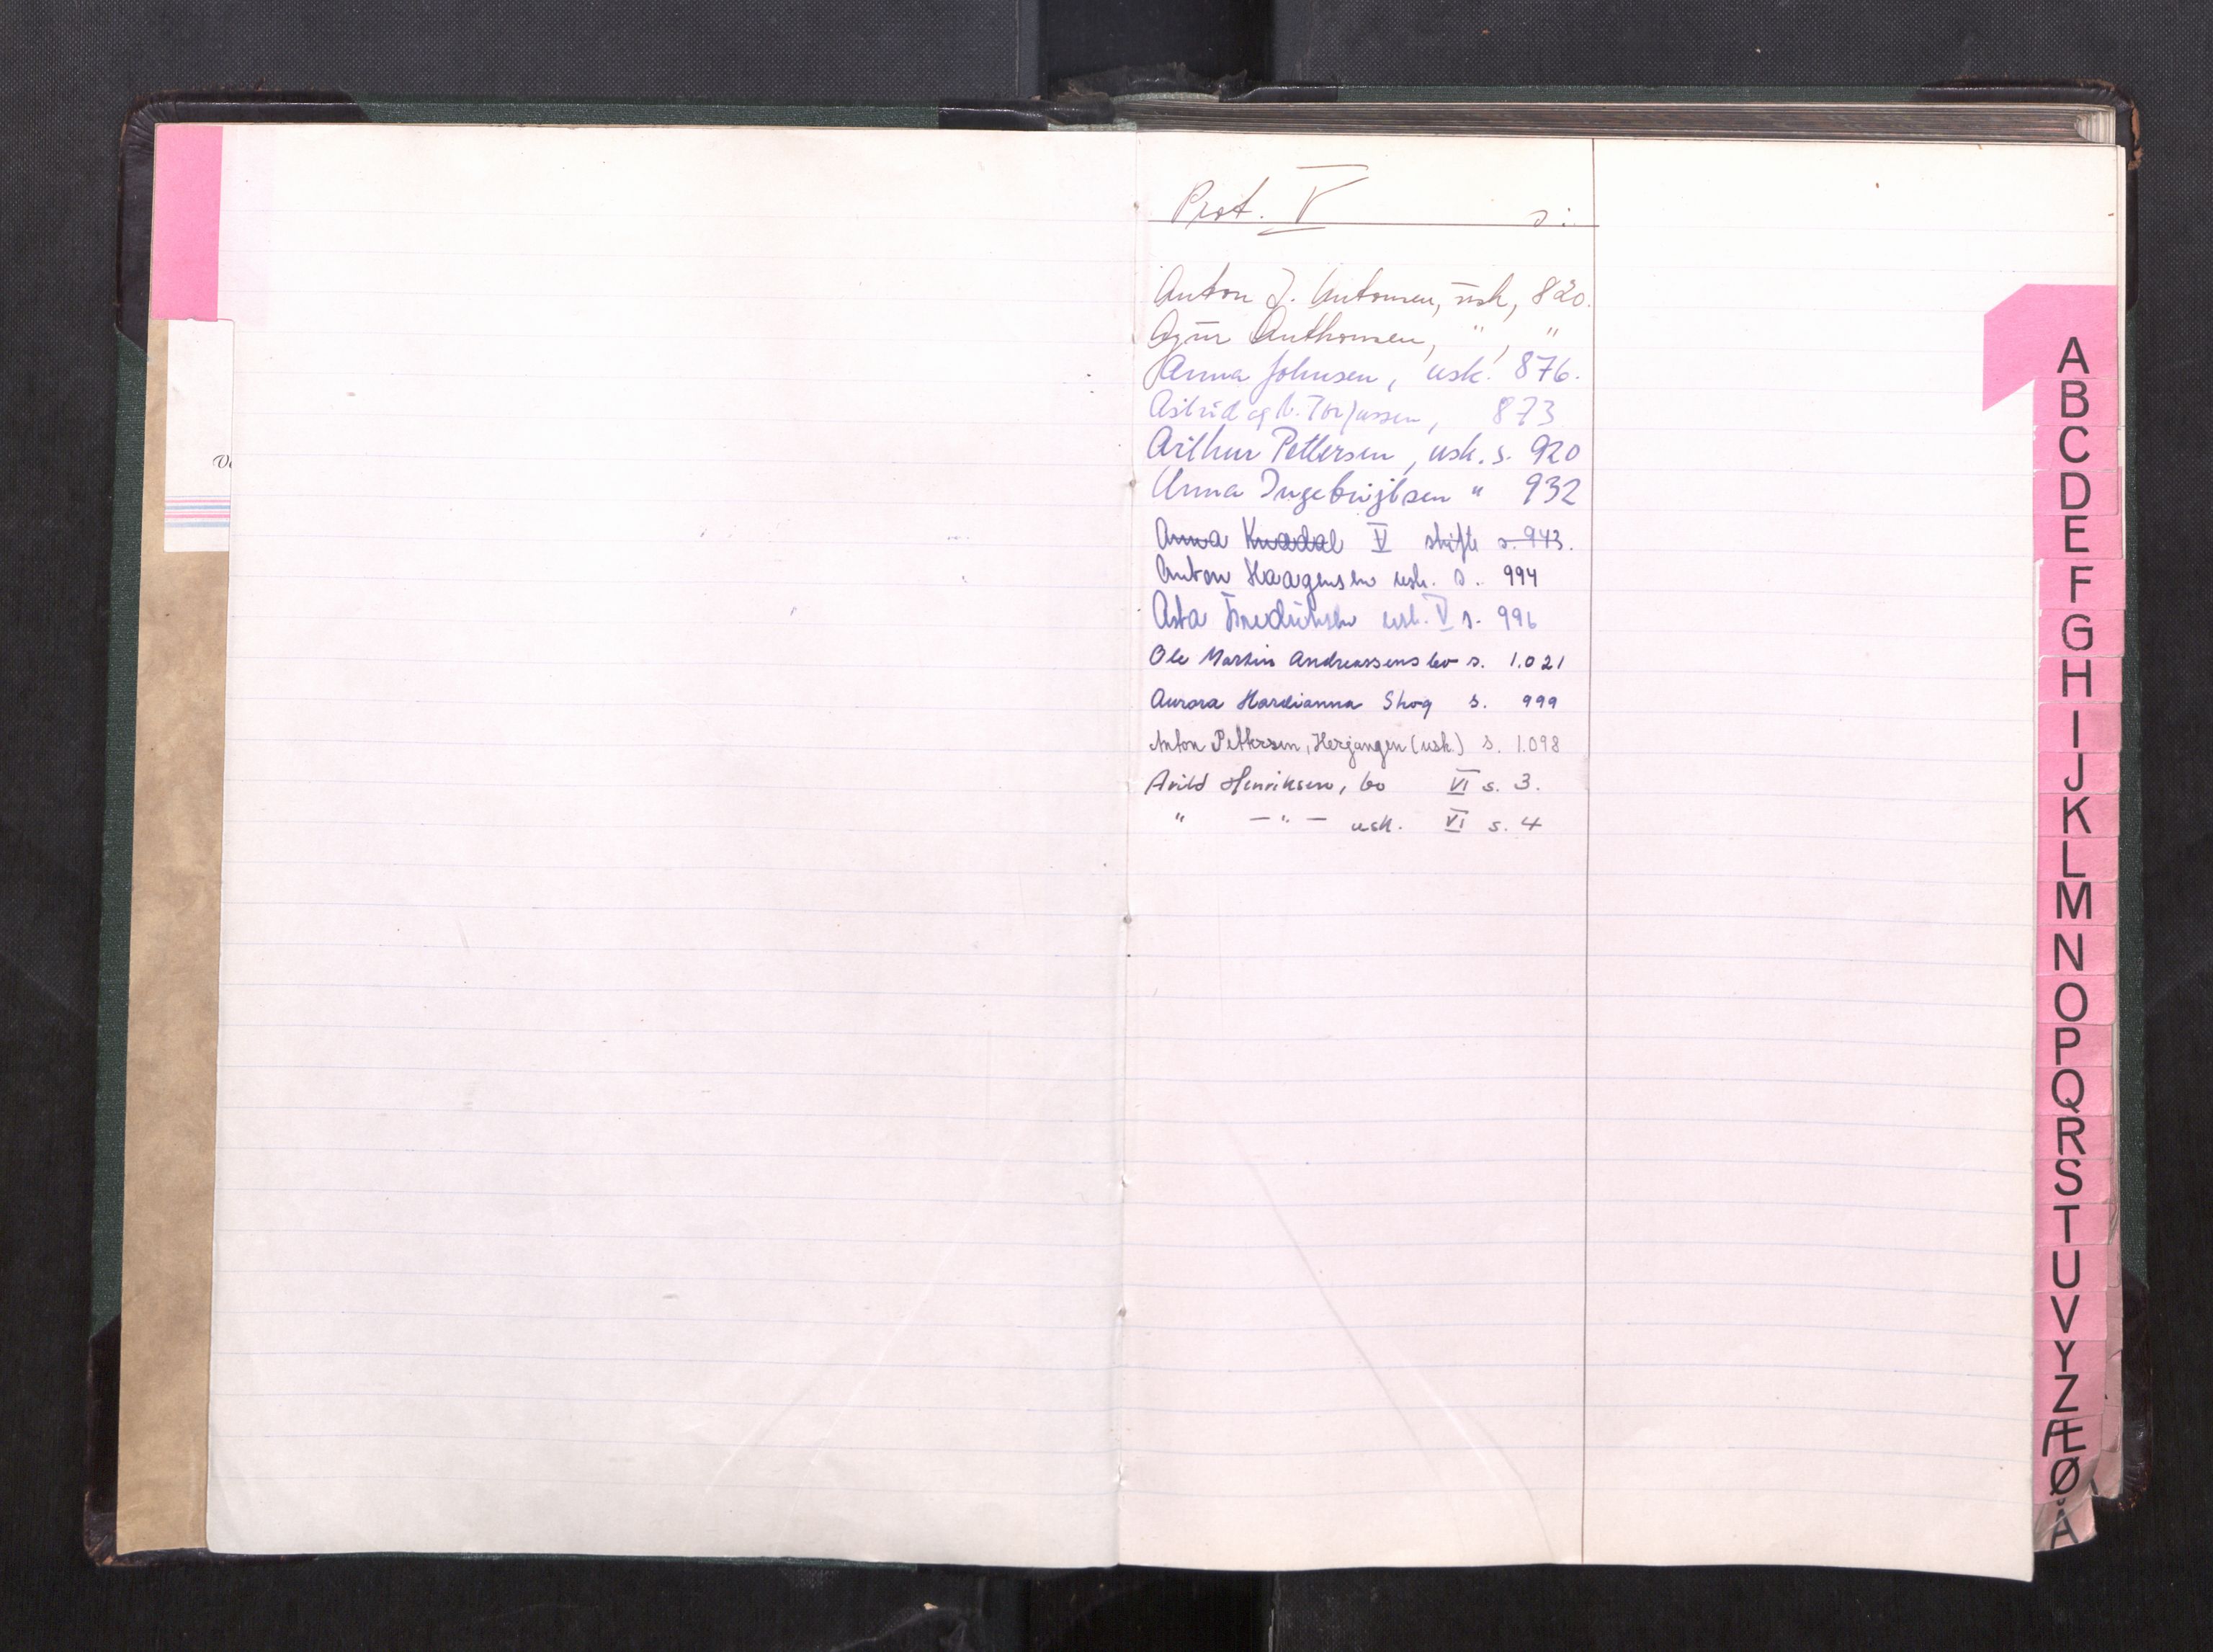 Prot. V s:
Anton J. Antonsen, usk, 820.
Anthonsen, " , "
Anna Johnsen, usk. 876.
Astrid og Torjussen, 873
Arthur Pettersen, usk. s. 920
Anna Ingebrigtsen " 932
Anna Knadal V skifte s. 943.
Anton Haagensen usk. s. 994
Asta Fredriksen usk. V s. 996
Ole Martin Andreassens bo s. 1.021
Aurora Hardianna Skog s. 999
Anton Pettersen, Herjangen (usk.) s. 1.098
Arild Henriksen, bo VI s. 3.
" — " — usk. VI s. 4
A
B
C
D
E
F
G
H
I
J
K
L
M
N
O
P
Q
R
S
T
U
V
Y
Z
Æ
Ø
Å